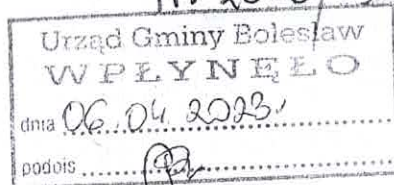 Urząd Gminy Bolesław
WPŁYNĘŁO
dnia 06.04.2023r
podpis